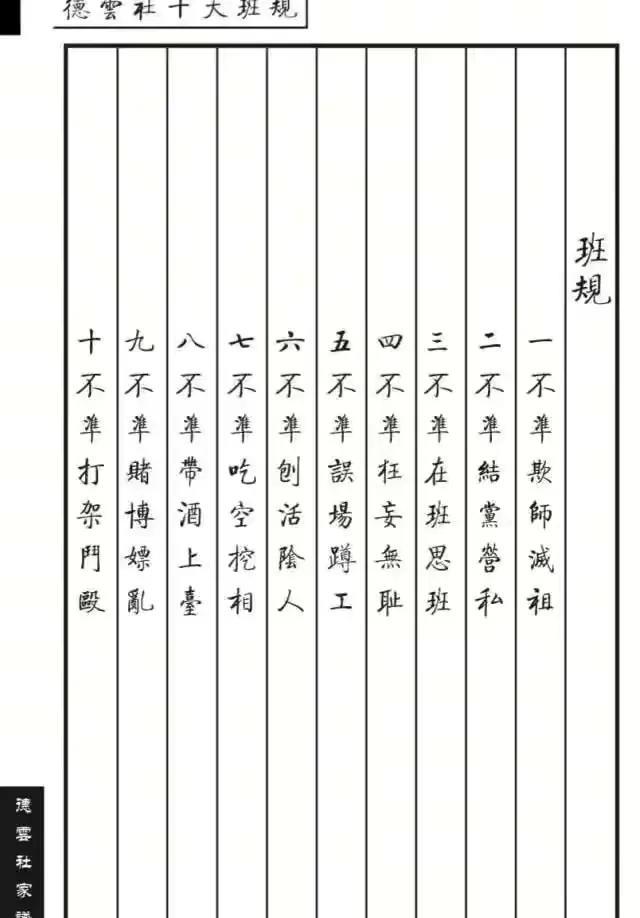 德雲社十大班規
班規
一不準欺師滅祖
二不準結黨營私
三不準在班思班
四不準狂妄無恥
五不準誤場蹲工
六不準刨活陰人
七不準吃空挖相
八不準帶酒上臺
九不準賭博嫖亂
十不準打架鬥毆
德雲社家譜